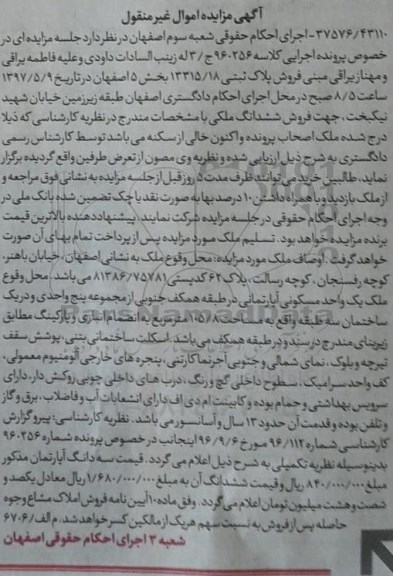 آگهی مزایده اموال غیر منقول
۳۷۵۷۶/۴۳۱۱۰- اجرای احکام حقوقی شعبه سوم اصفهان در نظر دارد جلسه مزایده ای در
خصوص پرونده اجرایی کلاسه ۹۶۰۲۵۶ ج/۳ له زینب السادات داودی و علیه فاطمه براقی
و مهناز براقی مبنی فروش پلاک ثبتی ۱۳۳۱۵/۱۸ بخش ۵ اصفهان در تاریخ ۱۳۹۷/۵/۹
ساعت ۸/۵ صبح در محل اجرای احکام دادگستری اصفهان طبقه زیرزمین خیابان شهید
نیکبخت، جهت فروش ششدانگ ملکی با مشخصات مندرج در نظریه کارشناسی که ذیلا
درج شده ملک اصحاب پرونده و اکنون خالی از سکنه می باشد توسط کارشناس رسمی
دادگستری به شرح ذیل ارزیابی شده و نظریه وی مصون از تعرض طرفین واقع گردیده برگزار
نماید، طالبین خرید می توانند ظرف مدت ۵ روز قبل از جلسه مزایده به نشانی فوق مراجعه و
از ملک بازدید و با همراه داشتن ۱۰ درصد بها به صورت نقد یا چک تضمین شده بانک ملی در
وجه اجرای احکام حقوقی در جلسه مزایده شرکت نمایند. پیشنهاد دهنده بالاترین قیمت
برنده مزایده خواهد بود. تسلیم ملک مورد مزایده پس از پرداخت تمام بهای آن صورت
خواهد گرفت. اوصاف ملک مورد مزایده: محل وقوع ملک به نشانی اصفهان، خیابان باهنر،
کوچه رفسنجان، کوچه رسالت، پلاک ۶۲ کدپستی ۸۱۳۸۶/۷۵۷۸۱ می باشد. محل وقوع
ملک یک واحد مسکونی آپارتمانی در طبقه همکف جنوبی از مجموعه پنج واحدی و در یک
ساختمان سه طبقه واقع به مساحت ۱۰۵/۸ مترمربع به انضمام انباری و پارکینگ مطابق
زیربنای مندرج در سند و در طبقه همکف می باشد. اسکلت ساختمانی بتنی، پوشش سقف
تیرچه و بلوک، نمای شمالی و جنوبی آجرنما کارتنی، پنجره های خارجی آلومنیوم معمولی،
کف واحد سرامیک، سطوح داخلی گچ و رنگ، درب های داخلی چوبی روکش دار، دارای
سرویس بهداشتی و حمام بوده و کابینت ام دی اف دارای انشعابات آب و فاضلاب، برق و گاز
و تلفن بوده و قدمت آن حدود ۱۳ سال و آسانسور می باشد. نظریه کارشناسی: پیرو گزارش
کارشناسی شماره ۹۶/۱۱۲ مورخ ۹۶/۹/۶ اینجانب در خصوص پرونده شماره ۹۶۰۲۵۶
بدینوسیله نظریه تکمیلی به شرح ذیل اعلام می گردد. قیمت سه دانگ آپارتمان مذکور
مبلغ ۸۴۰/۰۰۰/۰۰۰ ریال و قیمت ششدانگ آن به مبلغ ۱/۶۸۰/۰۰۰/۰۰۰ ریال معادل یکصد و
شصت و هشت میلیون تومان اعلام می گردد. وفق ماده ۱۰ آیین نامه فروش املاک مشاع وجوه
حاصله پس از فروش به نسبت سهم هر یک از مالکین کسر خواهد شد. م الف/۶۷۰۶
شعبه ۳ اجرای احکام حقوقی اصفهان